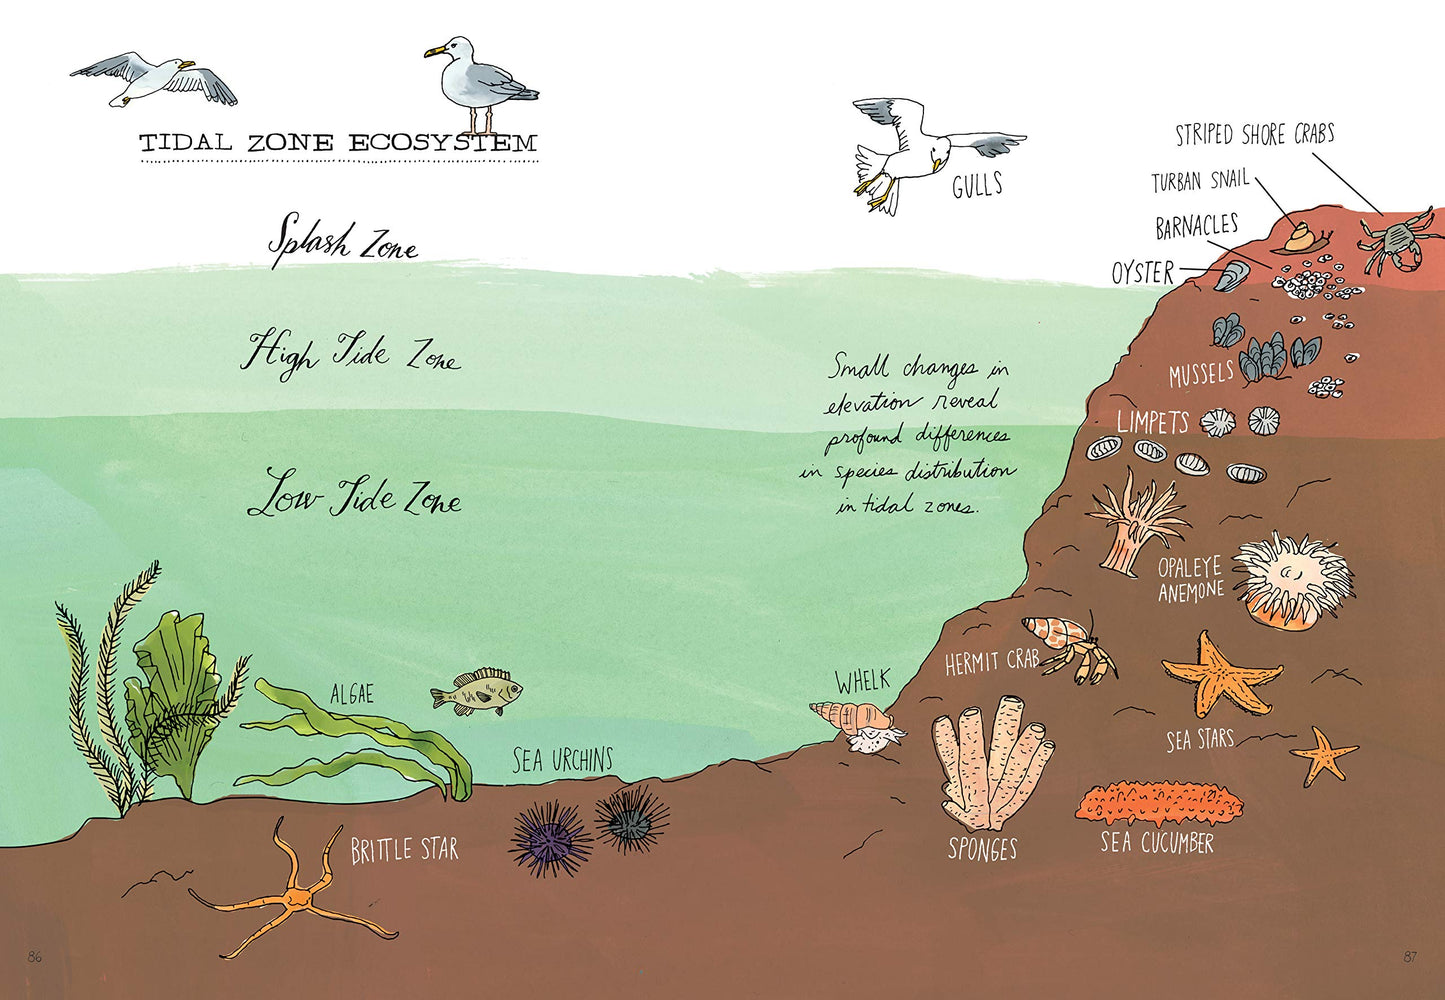 TIDAL ZONE ECOSYSTEM
Splash Zone
High Tide Zone
Low Tide Zone
GULLS
STRIPED SHORE CRABS
TURBAN SNAIL
BARNACLES
OYSTER
Small changes in
elevation reveal
profound differences
in species distribution
in tidal zones.
MUSSELS
LIMPETS
OPALEYE
ANEMONE
HERMIT CRAB
WHELK
SEA STARS
ALGAE
SEA URCHINS
BRITTLE STAR
SPONGES
SEA CUCUMBER
86
87